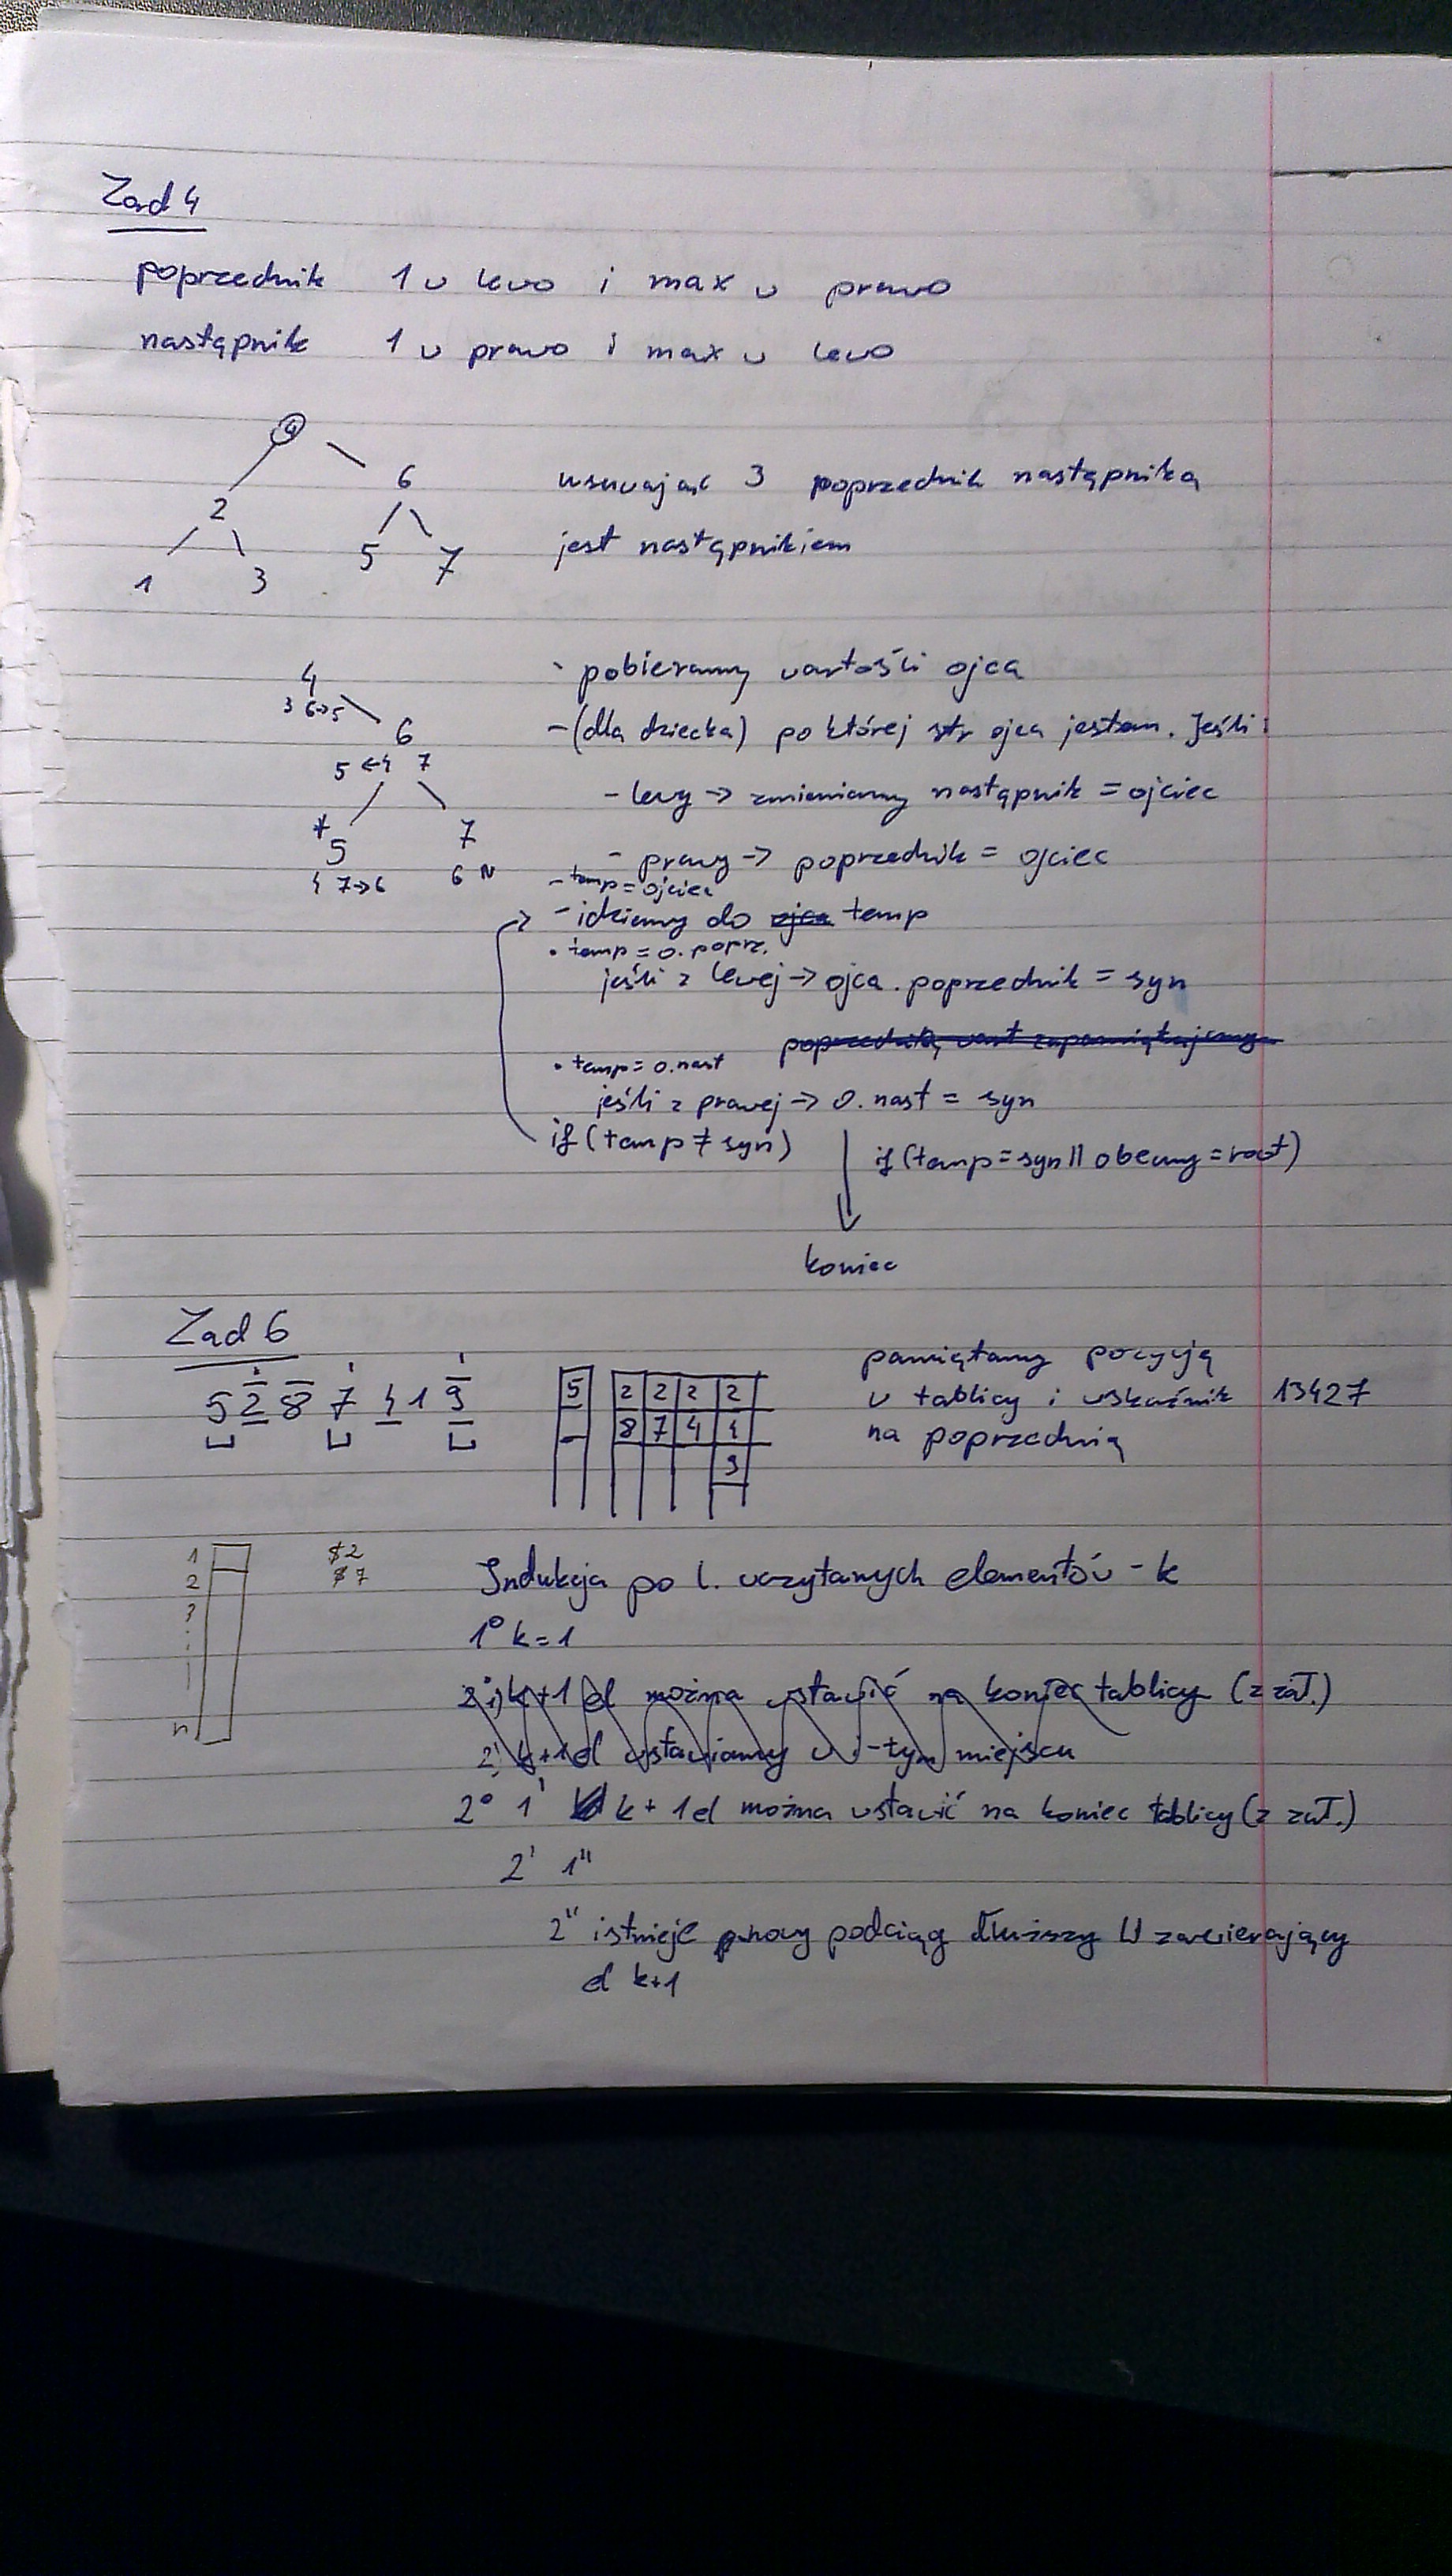 Zad 4
poprzednik 1 w lewo i max w prawo
następnik 1 w prawo i max w lewo
4
2 6
1 3 5 7
usuwając 3 poprzednik następnika
jest następnikiem
4
3 6→5
6
5 ←4 7
* 5 7
4 7→6 6 N
- pobieramy wartości ojca
- (dla dziecka) po której str ojca jestem. Jeśli:
- lewy → zmieniamy następnik = ojciec
- prawy → poprzednik = ojciec
- temp = ojciec
- idziemy do ojca temp
• temp = o. poprz.
jeśli z lewej → ojca . poprzednik = syn
• temp = o.nast
jeśli z prawej → o. nast = syn
if (temp ≠ syn)
if (temp = syn || obecny = root)
koniec
Zad 6
5 2 8 7 4 1 9
5 2 2 2 2
– 8 7 4 4
9
pamiętamy pozycję
w tablicy i wskaźnik 13427
na poprzednią
1
2
3
n
$2
$7
Indukcja po l. wczytanych elementów - k
1° k = 1
k+1 el można wstawić na koniec tablicy (z zał.)
2' k+1 el wstawiamy w i-tym miejscu
2° 1' k + 1 el można wstawić na koniec tablicy (z zał.)
2' 1"
2" istnieje nowy podciąg dłuższy zawierający
el k+1